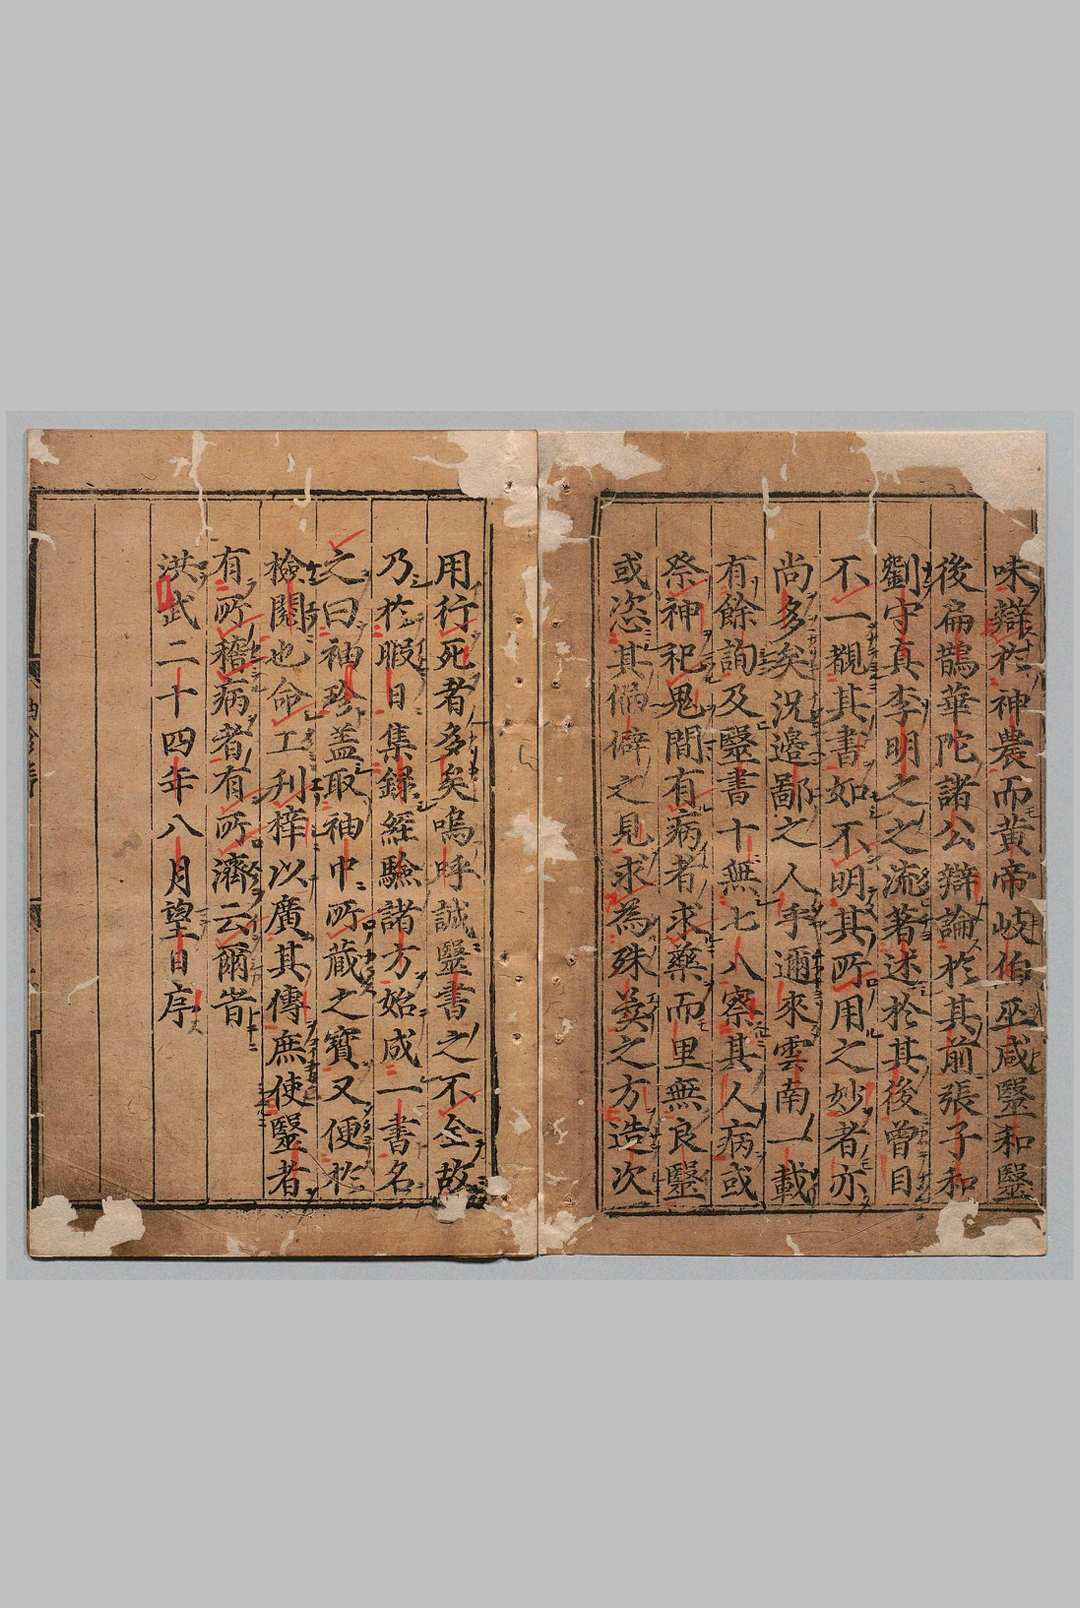 味辯於神農而黃帝岐伯巫咸毉和毉
後扁鵲華陀諸公辯論於其前張子和
劉守真李明之之流著述於其後曾目
不一覩其書如不明其所用之妙者亦
尚多矣況邊鄙之人乎邇來雲南一載
有餘詢及毉書十無七八察其人病或
祭神祀鬼間有病者求藥而里無良毉
或恣其偏僻之見求為殊異之方造次
用行死者多矣嗚呼誠毉書之不全故
乃於暇日集録經驗諸方始成一書名
之曰袖珍盖取袖中所藏之寶又便於
檢閱也命工刋梓以廣其傳庶使毉者
有所稽病者有所濟云爾旹
洪武二十四年八月望日序